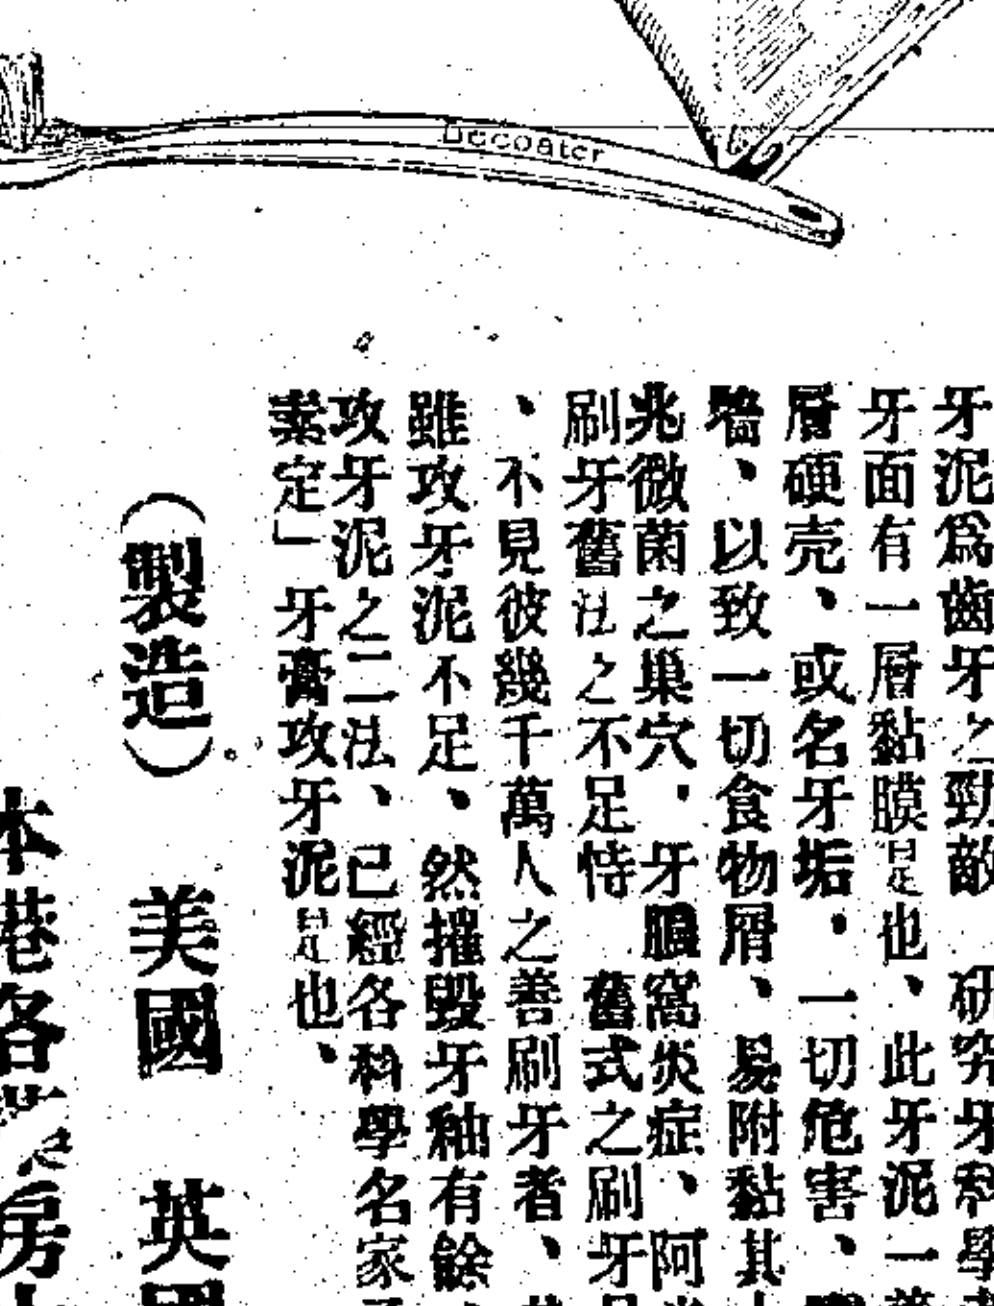 Decoater
牙泥爲齒牙之勁敵 研究牙科學
牙面有一層黏膜是也、此牙泥一
層硬壳、或名牙垢，一切危害、
牆、以致一切食物屑、易附黏其
兆微菌之巢穴，牙齦窩炎症、阿
刷牙舊法之不足恃 舊式之刷牙
、不見彼幾千萬人之善刷牙者、
雖攻牙泥不足、然摧毀牙釉有餘
攻牙泥之二法、已經各科學名家
素定」牙膏攻牙泥是也、
（製造） 美國 英國
本港各房